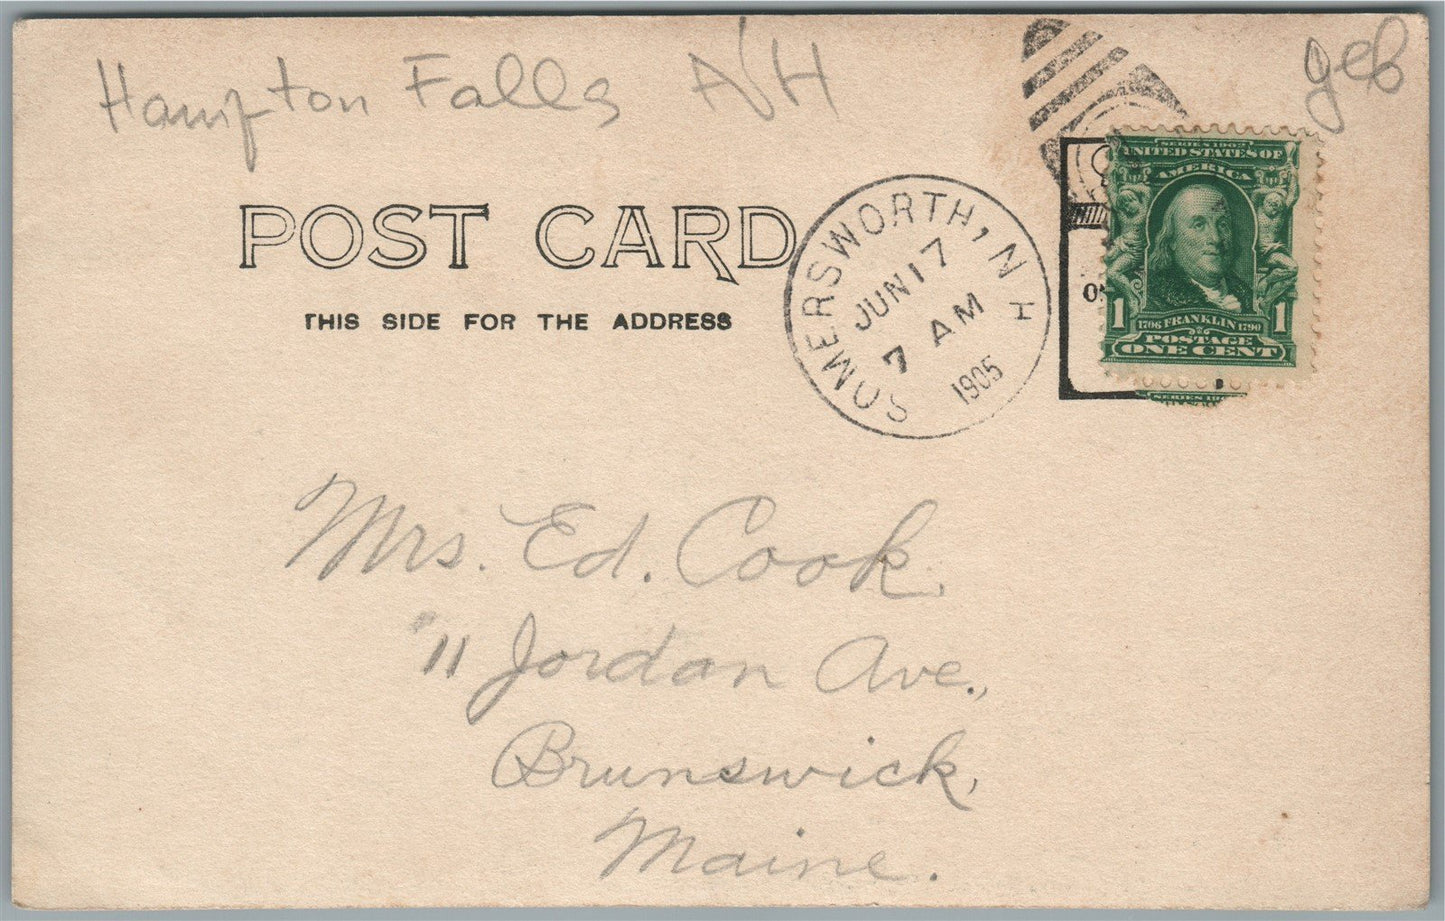 Hampton Falls NH
geb
POST CARD
THIS SIDE FOR THE ADDRESS
SOMERSWORTH, N H
JUN 17
7 AM
1905
SERIES 1902
UNITED STATES OF
AMERICA
1 1706 FRANKLIN 1790 1
POSTAGE
ONE CENT
Mrs. Ed. Cook,
"11 Jordan Ave.,
Brunswick,
Maine.